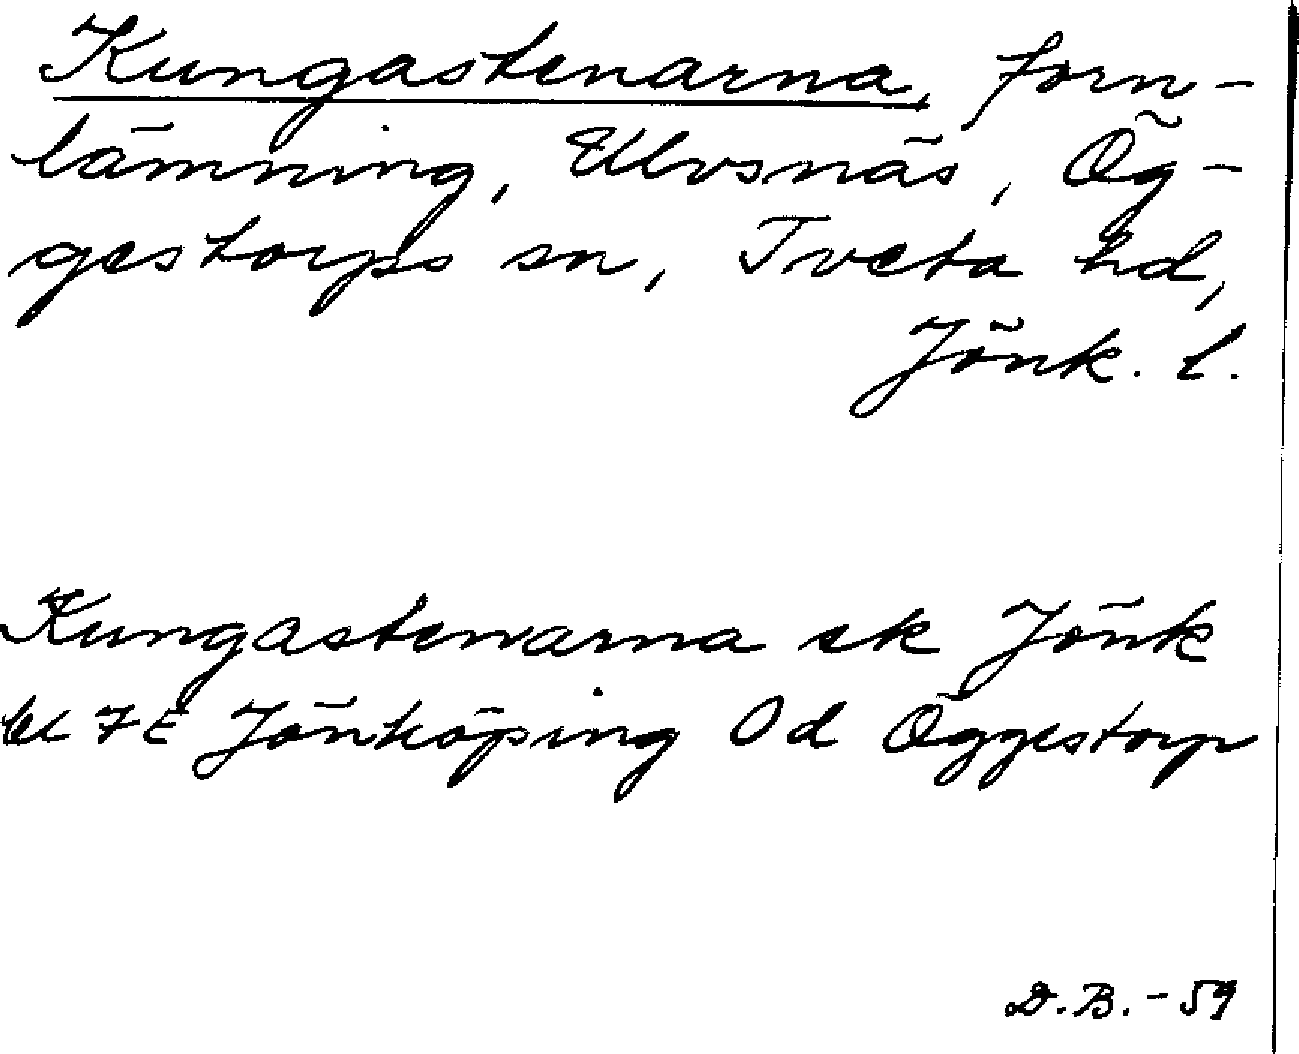 Kungastenarna, forn-
lämning, Ulvsnäs, Ög-
gestorps sn, Tveta hd,
Jönk. l.
Kungastenarna ek Jönk
bl 7E Jönköping Od Öggestorp
D.B. - 59